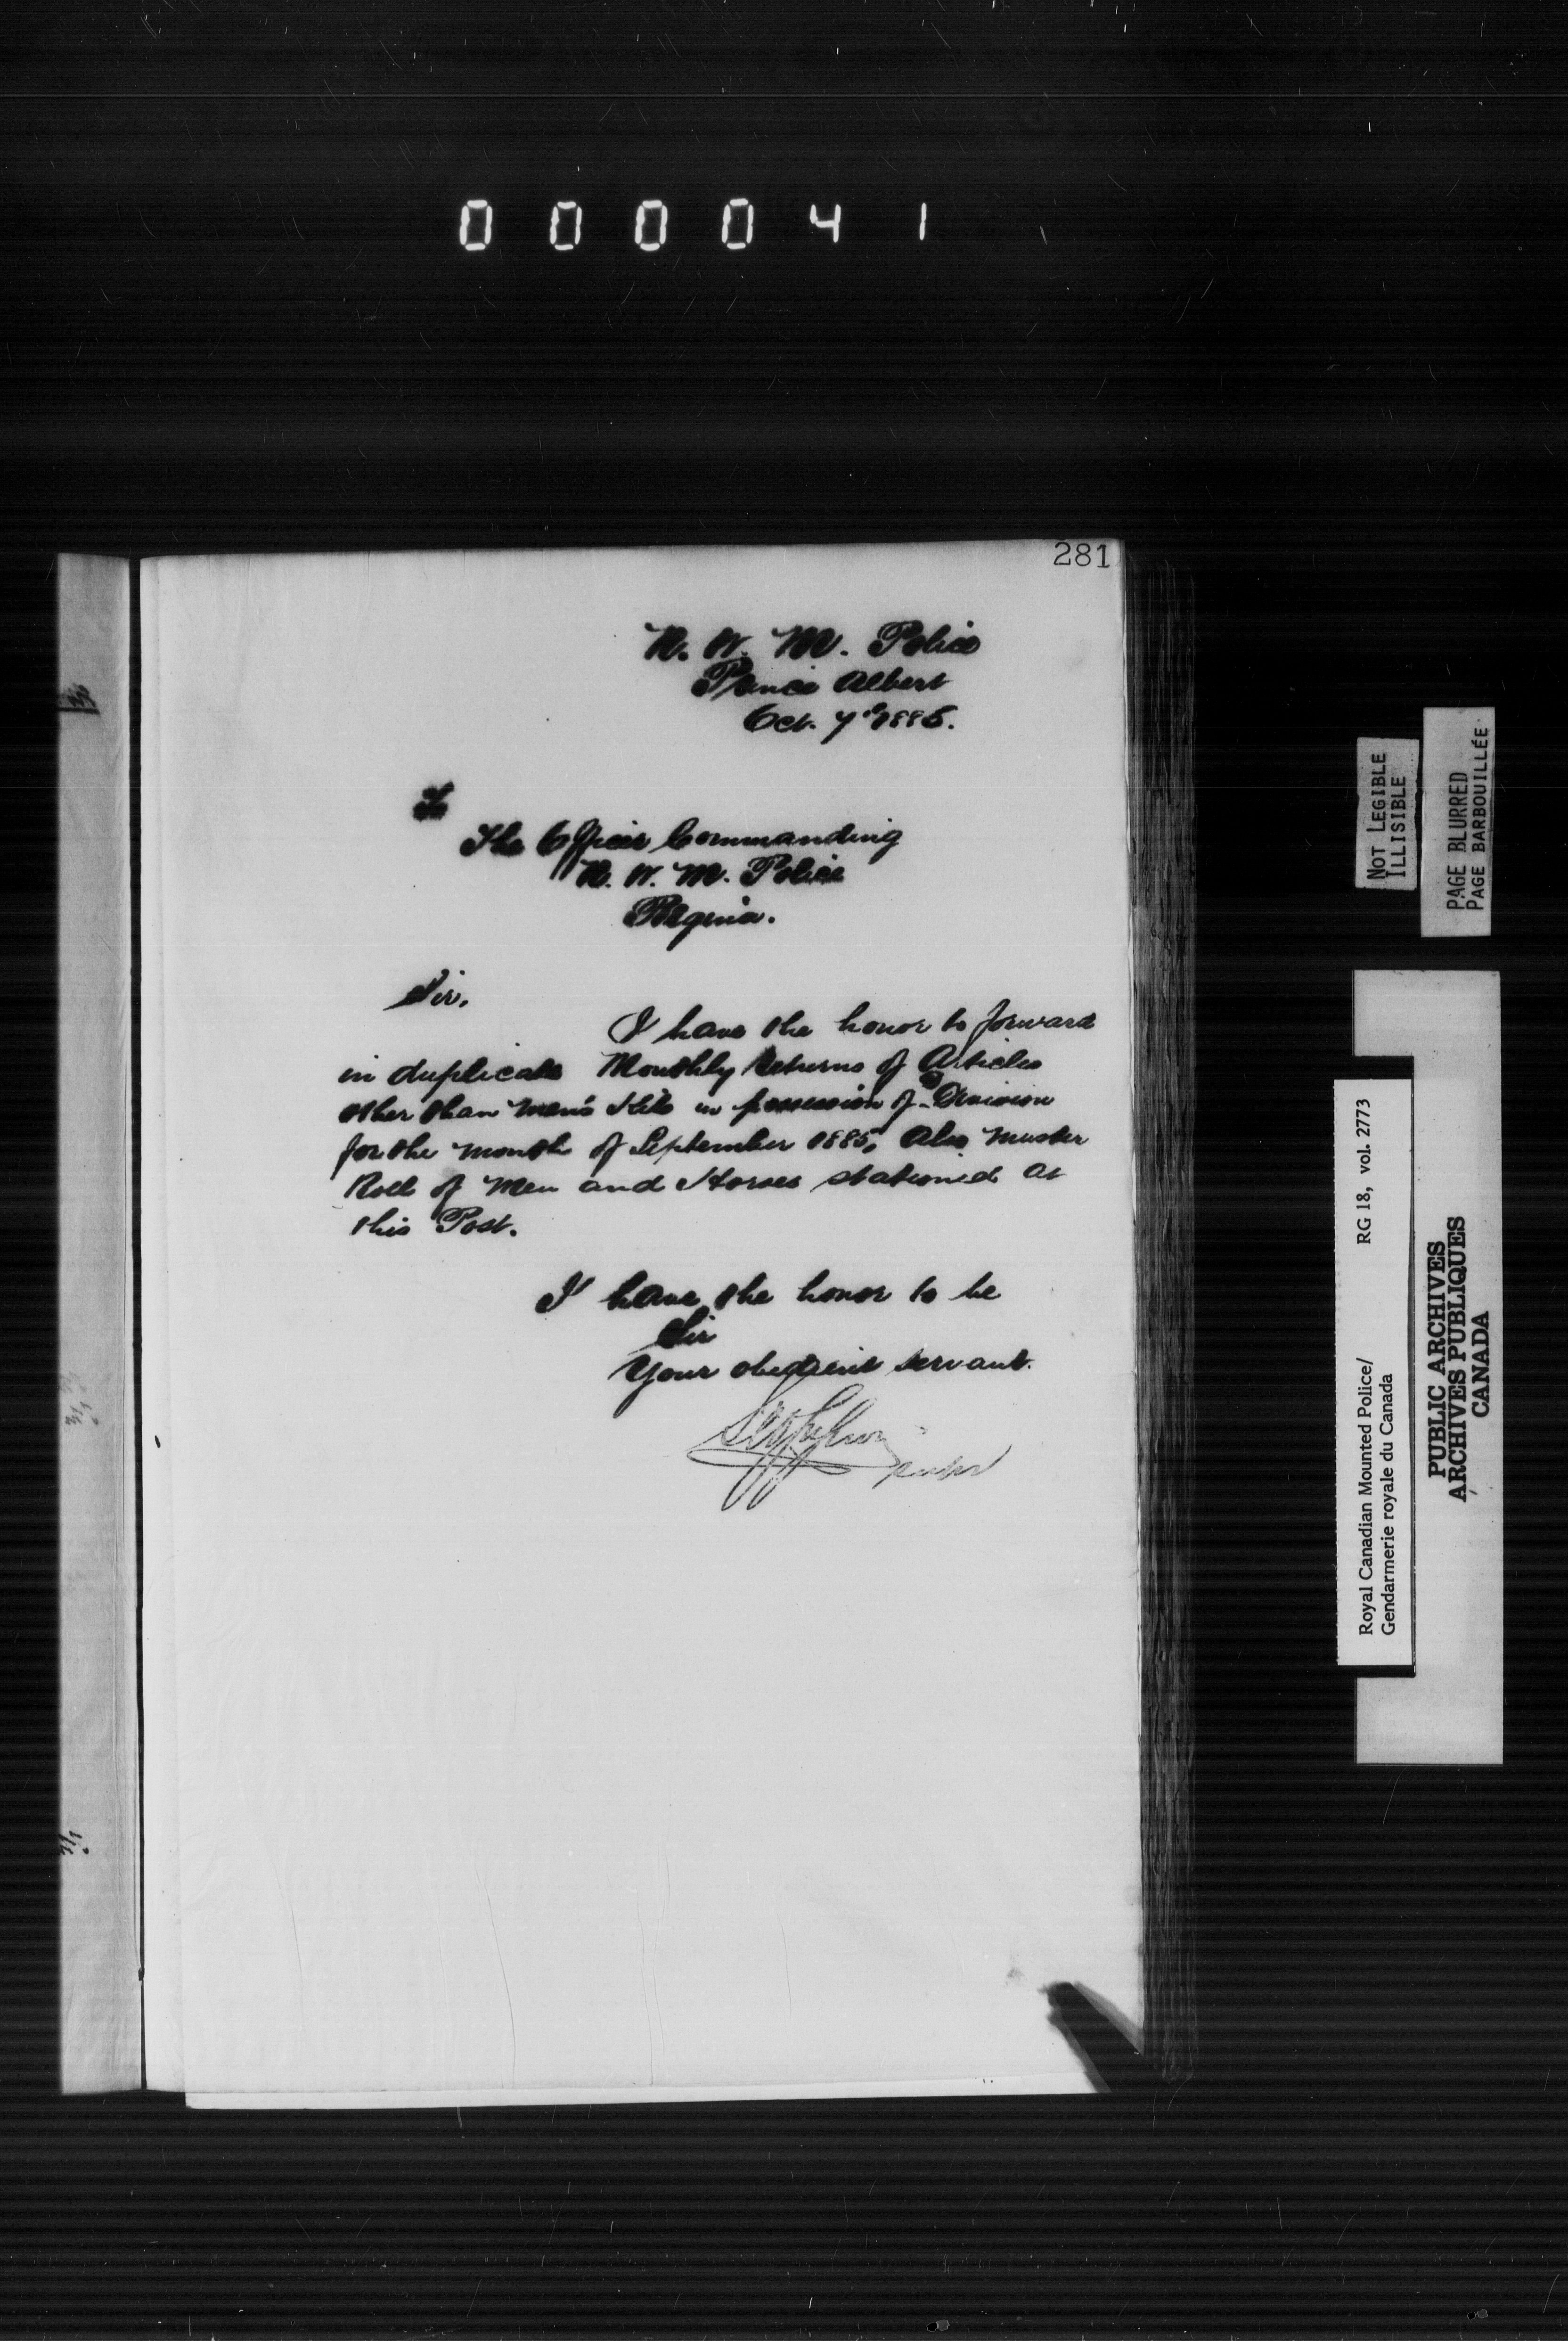 000041
281
N. W. M. Police
Prince Albert
Oct. 7th 1885.
To
The Officer Commanding
N. W. M. Police
Regina.
Sir,
I have the honor to forward
in duplicate Monthly Returns of Articles
other than Men's Kits in possession of D Division
for the month of September 1885, Also Muster
Roll of Men and Horses stationed at
this Post.
I have the honor to be
Sir
Your obedient servant.
Supt
NOT LEGIBLE
ILLISIBLE
PAGE BLURRED
PAGE BARBOUILLÉE
Royal Canadian Mounted Police/ RG 18, vol. 2773
Gendarmerie royale du Canada
PUBLIC ARCHIVES
ARCHIVES PUBLIQUES
CANADA